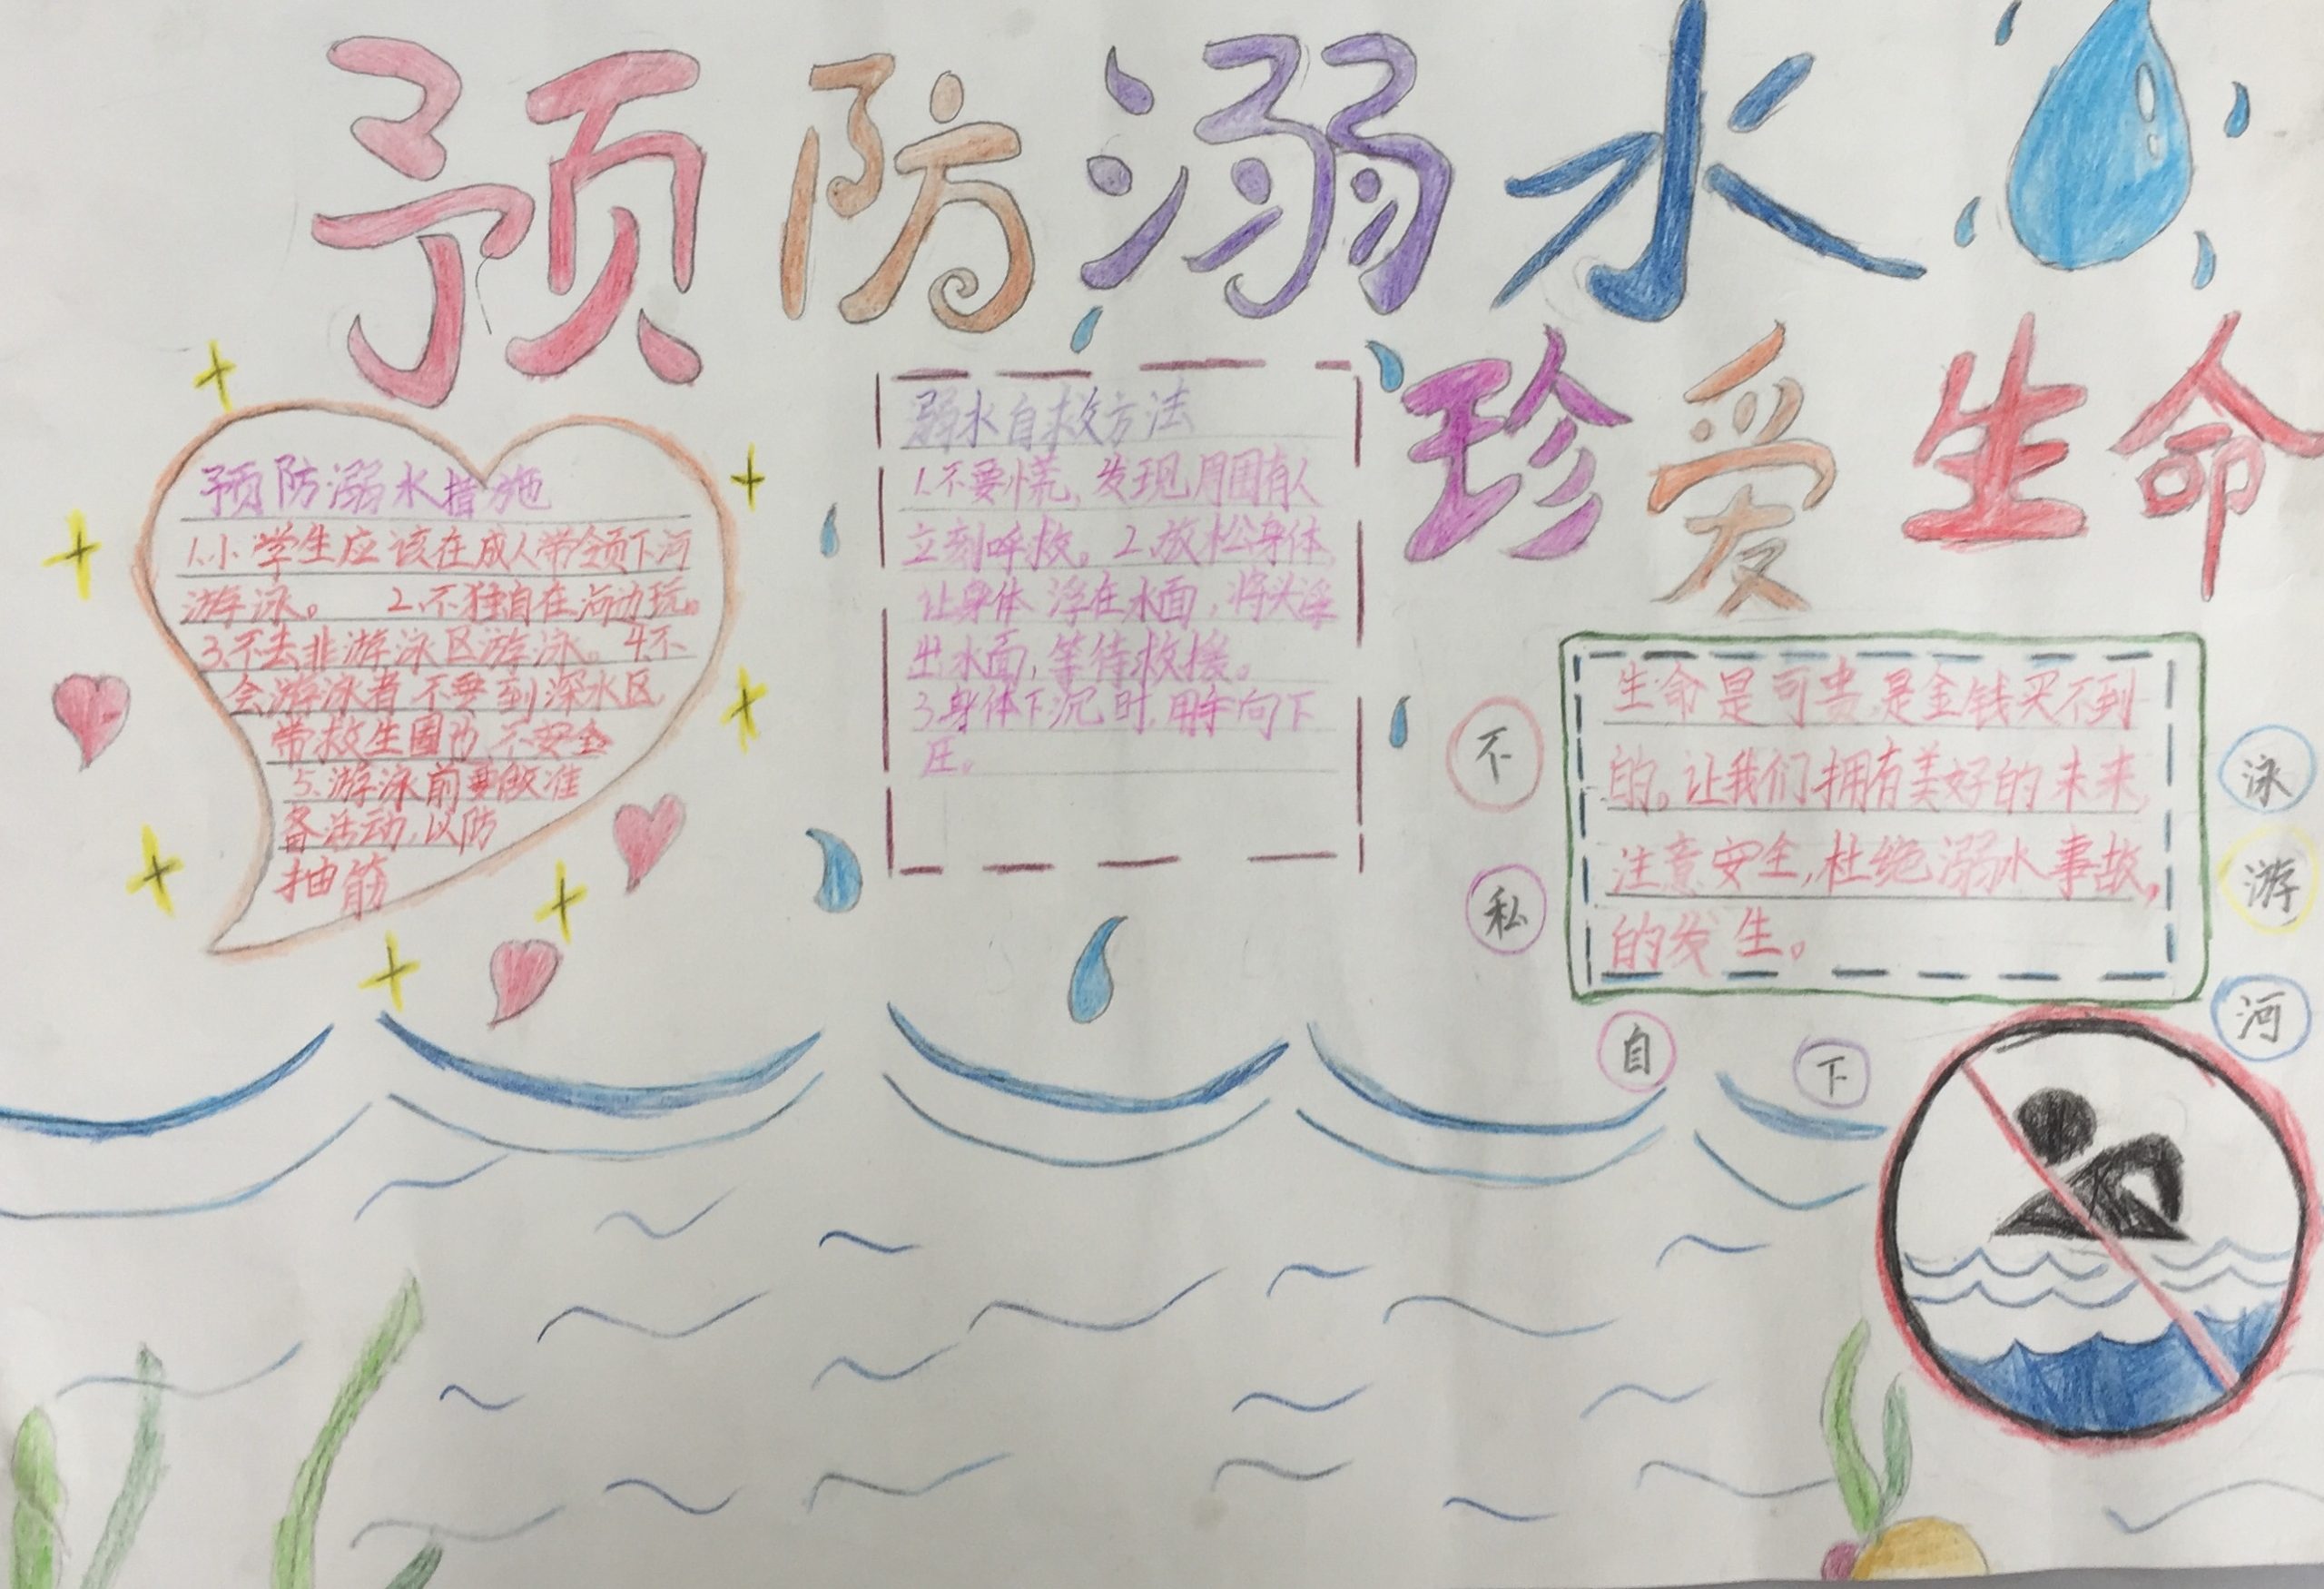 预防溺水
珍爱生命
预防溺水措施
1.小学生应该在成人带领下河
游泳。 2.不独自在河边玩。
3.不去非游泳区游泳。4.不
会游泳者不要到深水区,
带救生圈也不安全
5.游泳前要做准
备活动,以防
抽筋
溺水自救方法
1.不要慌,发现周围有人
立刻呼救。2.放松身体,
让身体浮在水面,将头浮
出水面,等待救援。
3.身体下沉时,用手向下
压。
生命是可贵,是金钱买不到
的。让我们拥有美好的未来,
注意安全,杜绝溺水事故,
的发生。
不
私
自
下
河
游
泳